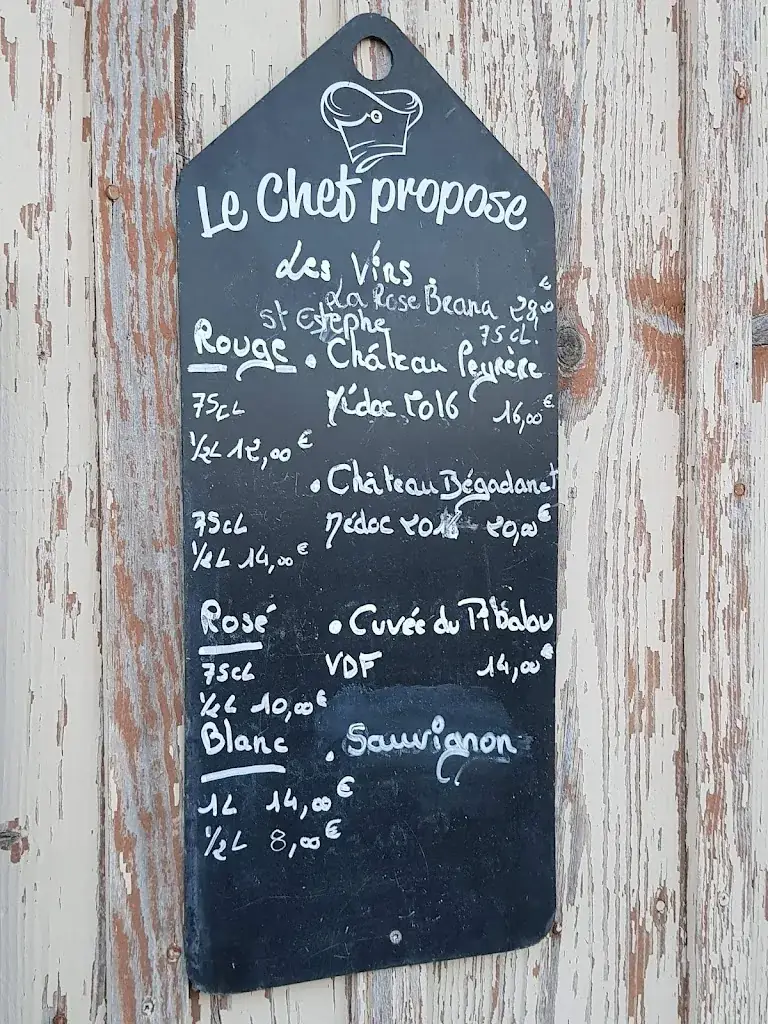 Le Chef propose
Les Vins
La Rose Brana 28,00€
St Estèphe 75cl.
Rouge • Château Peyrère
75cl Médoc 2016 16,00€
1/2L 12,00€
• Château Bégadanet
75cl Médoc 20,00€
1/2L 14,00€
Rosé • Cuvée du Pibalou
75cl VDF 14,00€
1/2L 10,00€
Blanc • Sauvignon
1L 14,00€
1/2L 8,00€